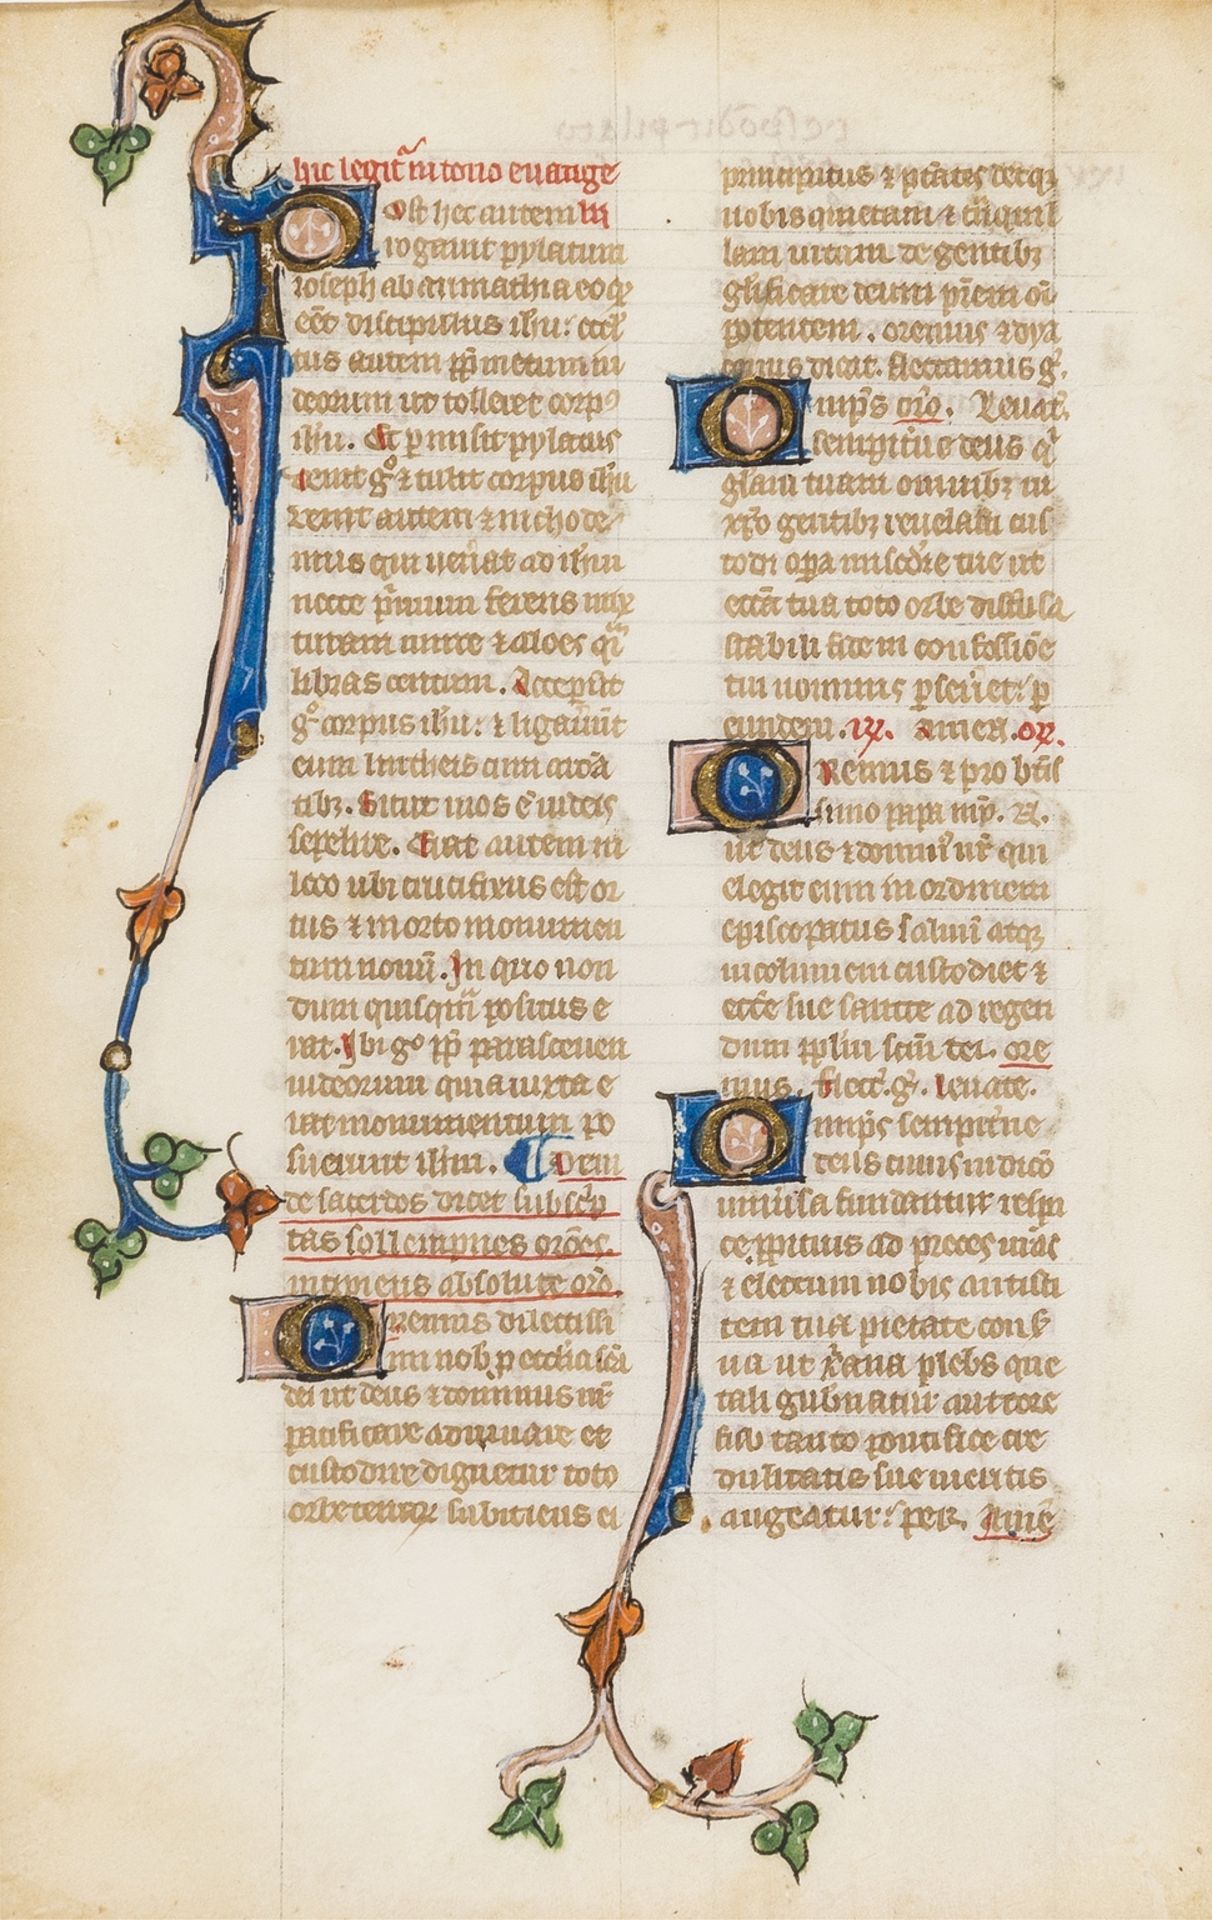 hic legit̃ in tono euange
Post hec autem ro
rogauit pylatum
ioseph ab arimathia eo qp
eēt discipulus ihu: occl
tus autem pp̄ metum iu
deorum ut tolleret corpꝰ
ihu. Et p̱misit pylatus
uenit gͦ ⁊ tulit corpus ihu
uenit autem ⁊ nichode
mus qui uen̄at ad ihm
nocte p̄mum ferens mix
turam mirre ⁊ aloes qͣi
libras centum. Acceper̄t
gͦ corpus ihu: ⁊ ligauer̄t
eum lintheis cum aroa
tibꝫ. Sicut mos ē iudeis
sepelire. Erat autem in
loco ubi crucifixus est or
tus ⁊ in orto monumen
tum nouū. In quo non
dum quisqͣm positus e
rat. Ibi gͦ pp̄ parasceuen
iudeorum quia iuxta e
rat monumentum po
suerunt ihm. Dein
de sacerdos dicet subsc̄p
tas sollempnes orōes.
incipiens absolute orō.
Oremus dilectissi
mi nob̄ p̱ ecclia sc̄a
dei ut deus ⁊ dominus nr̄
pacificare adunare et
custodire dignetur toto
orbe terraꝝ subiciens ei
principatus ⁊ p̄tates detqꝫ
nobis quietam ⁊ tn̄quil
lam uitam degentibꝫ
glificare deum pr̄em oī
potentem. oremus ⁊ dya
conus dicat. flectamus g̊.
Omp̄s orō. Leuat̄.
sempit̄ne deus qͥ
głam tuam omnibꝫ in
xp̄o gentibꝫ reuelasti cus
todi opa miscd̄ie tue ut
ecc̄a tua toto orbe diffusa
stabili fide in confessiōe
tui nominis p̱seuet: p̱
eundem. ꝶ. Amen. oꝝ.
Oremus ⁊ pro btīs
simo papa nr̄o. N.
ut deus ⁊ dominꝰ nr̄ qui
elegit eum in ordinem
episcopatus saluū atqꝫ
incolumem custodiet ⁊
ecc̄e sue sancte ad regen
dum pplm̄ scm̄ dei. ore
mus. flect̄. g̊. leuate.
Omp̄s sempit̄ne
deus cuius iudicō
uniu̇sa fundantur respi
ce ppitius ad preces nr̄as
⁊ electum nobis antisti
tem tua pietate cons̄
ua ut xp̄iana plebs que
tali gub̄natur auctore
sub tanto pontifice cre
dulitatis sue meritis
augeatur: per. Amē